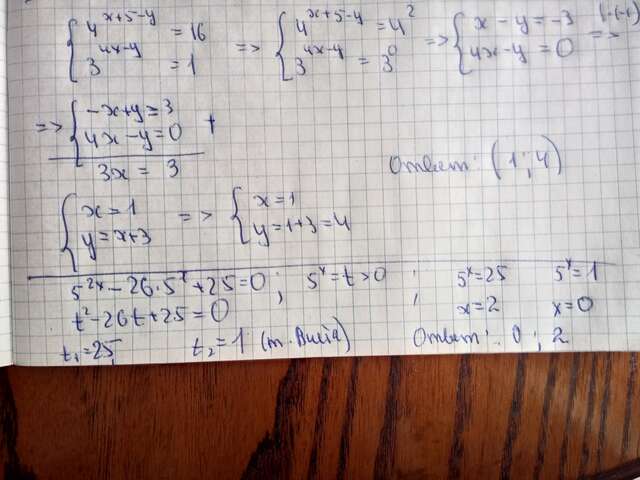 { 4^(x+5-y) = 16 => { 4^(x+5-y) = 4^2 => { x - y = -3 | ·(-1) =>
{ 3^(4x-y) = 1 { 3^(4x-y) = 3^0 { 4x - y = 0
=> { -x + y = 3 +
{ 4x - y = 0
3x = 3 Ответ: (1; 4)
{ x = 1 => { x = 1
{ y = x + 3 { y = 1 + 3 = 4
5^(2x) - 26·5^x + 25 = 0 ; 5^x = t > 0 ; 5^x = 25 5^x = 1
t^2 - 26t + 25 = 0 ; x = 2 x = 0
t₁ = 25, t₂ = 1 (т. Виета) Ответ: 0 ; 2